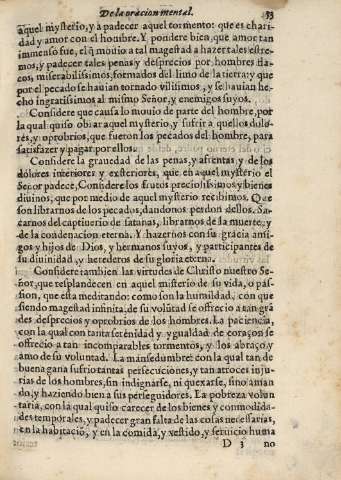 De la oracion mental.
aquel mysterio, y a padecer aquel tormento: que es chari
dad y amor con el hombre. Y pondere bien, que amor tan
immenso fue, el q̃ mouio a tal magestad a hazer tales estre-
mos, y padecer tales penas y desprecios por hombres fla-
cos, miserabilissimos, formados del limo de la tierra; y que
por el pecado se hauian tornado vilissimos, y se hauian he-
cho ingratissimos al mismo Señor, y enemigos suyos.
Considere que causa lo mouio de parte del hombre, por
la qual quiso obrar aquel mysterio, y sufrir aquellos dolo-
res, y oprobrios, que fueron los pecados del hombre, para
satisfazer y pagar por ellos.
Considere la grauedad de las penas, y afrentas y de los
dolores interiores y exteriores, que en aquel mysterio el
Señor padece, Considere los frutos preciosissimos y bienes
diuinos, que por medio de aquel mysterio recibimos. Que
son librarnos de los pecados, dandonos perdon dellos. Sa-
carnos del captiuerio de satanas, librarnos de la muerte, y
de la condenacion eterna. Y hazernos con su gracia ami-
gos y hijos de Dios, y hermanos suyos, y participantes de
su diuinidad, y herederos de su gloria eterna.
Considere tambien las virtudes de Christo nuestro Se-
ñor, que resplandecen en aquel misterio de su vida, o pas-
sion, que esta meditando: como son la humildad, con que
siendo magestad infinita, de su volũtad se offrecio a tan grã
des desprecios y oprobrios de los hombres. La paciencia,
con la qual con tanta serenidad y ygualdad de coraçon se
offrecio a tan incomparables tormentos, y los abraço y
amo de su voluntad. La mansedumbre: con la qual tan de
buena gana sufrio tantas persecuciones, y tan atroces inju-
rias de los hombres, sin indignarse, ni quexarse, sino aman
do, y haziendo bien a sus perseguidores. La pobreza volun
taria, con la qual quiso carecer de los bienes y commodida-
des temporales, y padecer gran falta de las cosas necessarias,
en la habitaciõ, y en la comida, y vestido, y seruicio huma
D 3 no